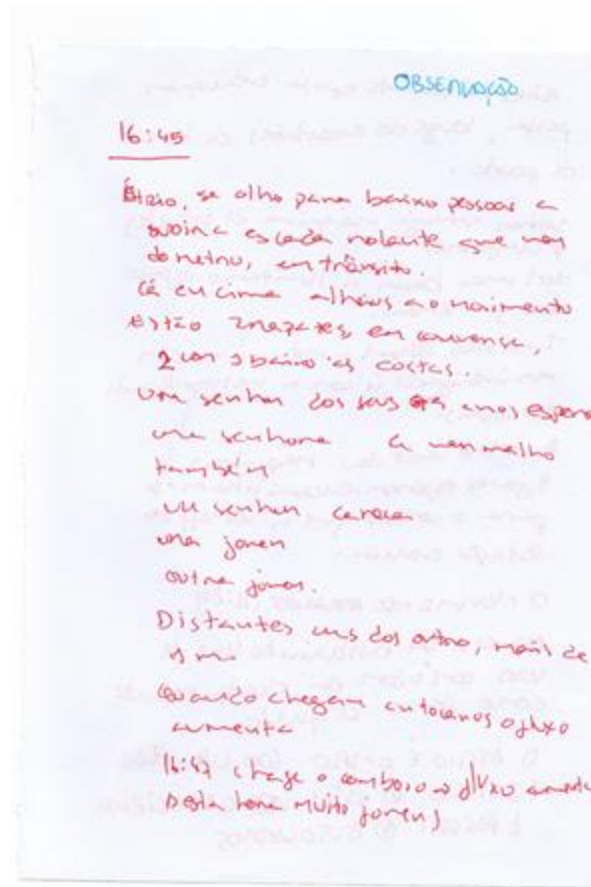 OBSERVAÇÃO
16:45
Átrio, se olho para baixo pessoas a
subir a escada rolante que vem
do metro, em trânsito.
Cá em cima alheios ao movimento
estão rapazes, em conversa,
2 com às costas.
Um senhor dos seus anos espera
uma senhora de vermelho
também
um senhor careca
uma jovem
outra jovem.
Distantes uns dos outro, mais de
Quando chegam autocarros o fluxo
aumenta
16:47 chega o comboio o fluxo aumenta
Nesta hora muito jovens